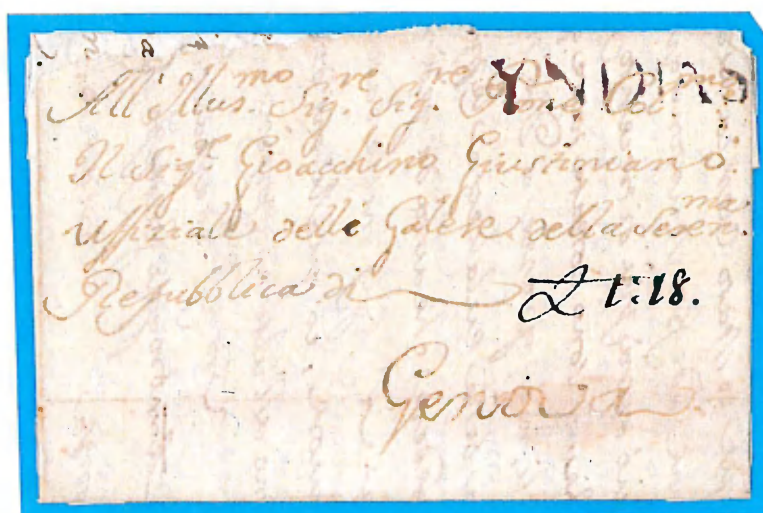 YNDIAS
All' Illus.mo Sig.re Sig.re P.rone Col.mo
Il Sig.re Gioacchino Giustiniano.
Uffiziale delle Galere della Seren.ma
Repubblica di
£ 1:18.
Genova